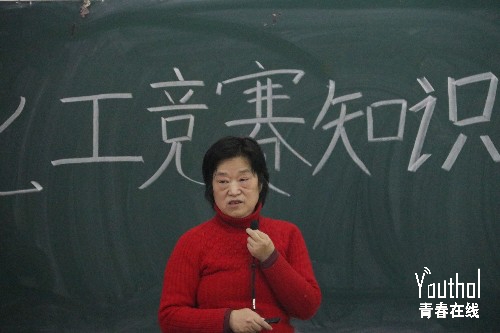 工竞赛知识
Youthol
青春在线